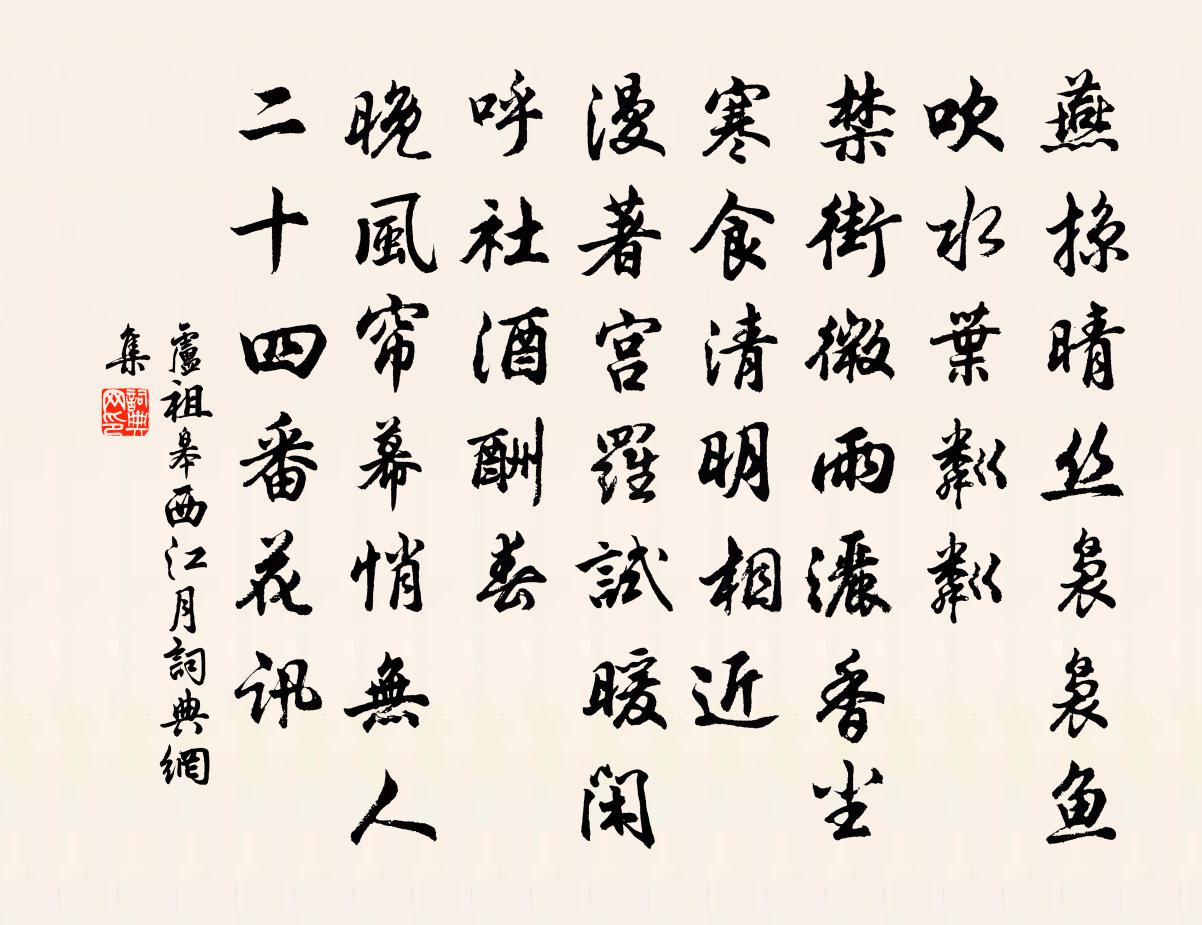 燕掠晴丝袅袅鱼
吹水葉粼粼
禁街微雨灑香尘
寒食清明相近
漫著宫羅試暖闲
呼社酒酬春
晚風帘幕悄無人
二十四番花讯
盧祖皋西江月詞典網
集
詞典网印